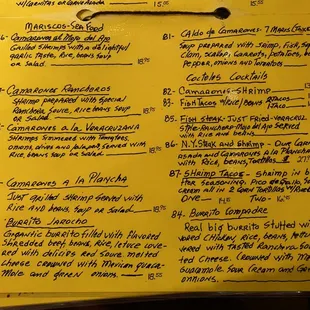 15.00
Mariscos-Sea Food
Camarones al Mojo del Ajo
Grilled Shrimps with a delightful
garlic taste, Rice, beans Soup
or Salad. 18.95
Camarones Rancheros
Shrimp prepared with special
Ranchera Souce, Rice beans Soup
or Salad. 18.95
Camarones a la Veracruzana
Shrimps Simmered with Tomatoes,
onions, olives and Jalapeños served with
Rice, beans soup or Salad. 18.95
Camarones a la Plancha
Just grilled shrimp served with
Rice and beans soup or Salad. 18.95
Burrito Jarocho
Gigantic burrito filled with flavored
Shredded beef, beans, Rice, letuce cove-
red with delicios Red Souce melted
cheese crowned with Mexican guaca-
Mole and green onions. 18
15.00
B1- Caldo de Camarones-7 Mares
Soup prepared with Shrimp, fish,
Clam, Scalop, Carrots, Potatos,
Pepper, onions and Tomatoes
Cocteles Cocktails
B2- Camarones-Shrimp
B3- Fish Tacos Rice/Beans
B5- Fish Steak-Just Fried-Veracruz
Style-Ranchero-Mojo del Ajo Served
with Rice and beans
B6- N.Y. Steak and Shrimp-Our Carne
asada and Camarones a la Plancha
with Rice, beans, Tortillas.
B7- Shrimp Tacos- Shrimp in
ter Seasoning, Pico de Gallo,
cream all in 2 corn Tortillas
One 14 Two 16
B4. Burrito Compadre
Real big burrito Stuffed with
vored Chicken, Rice, beans,
vered with tasted Ranchera
ted Cheese. Crowned with
Guacamole Sour cream and
onions